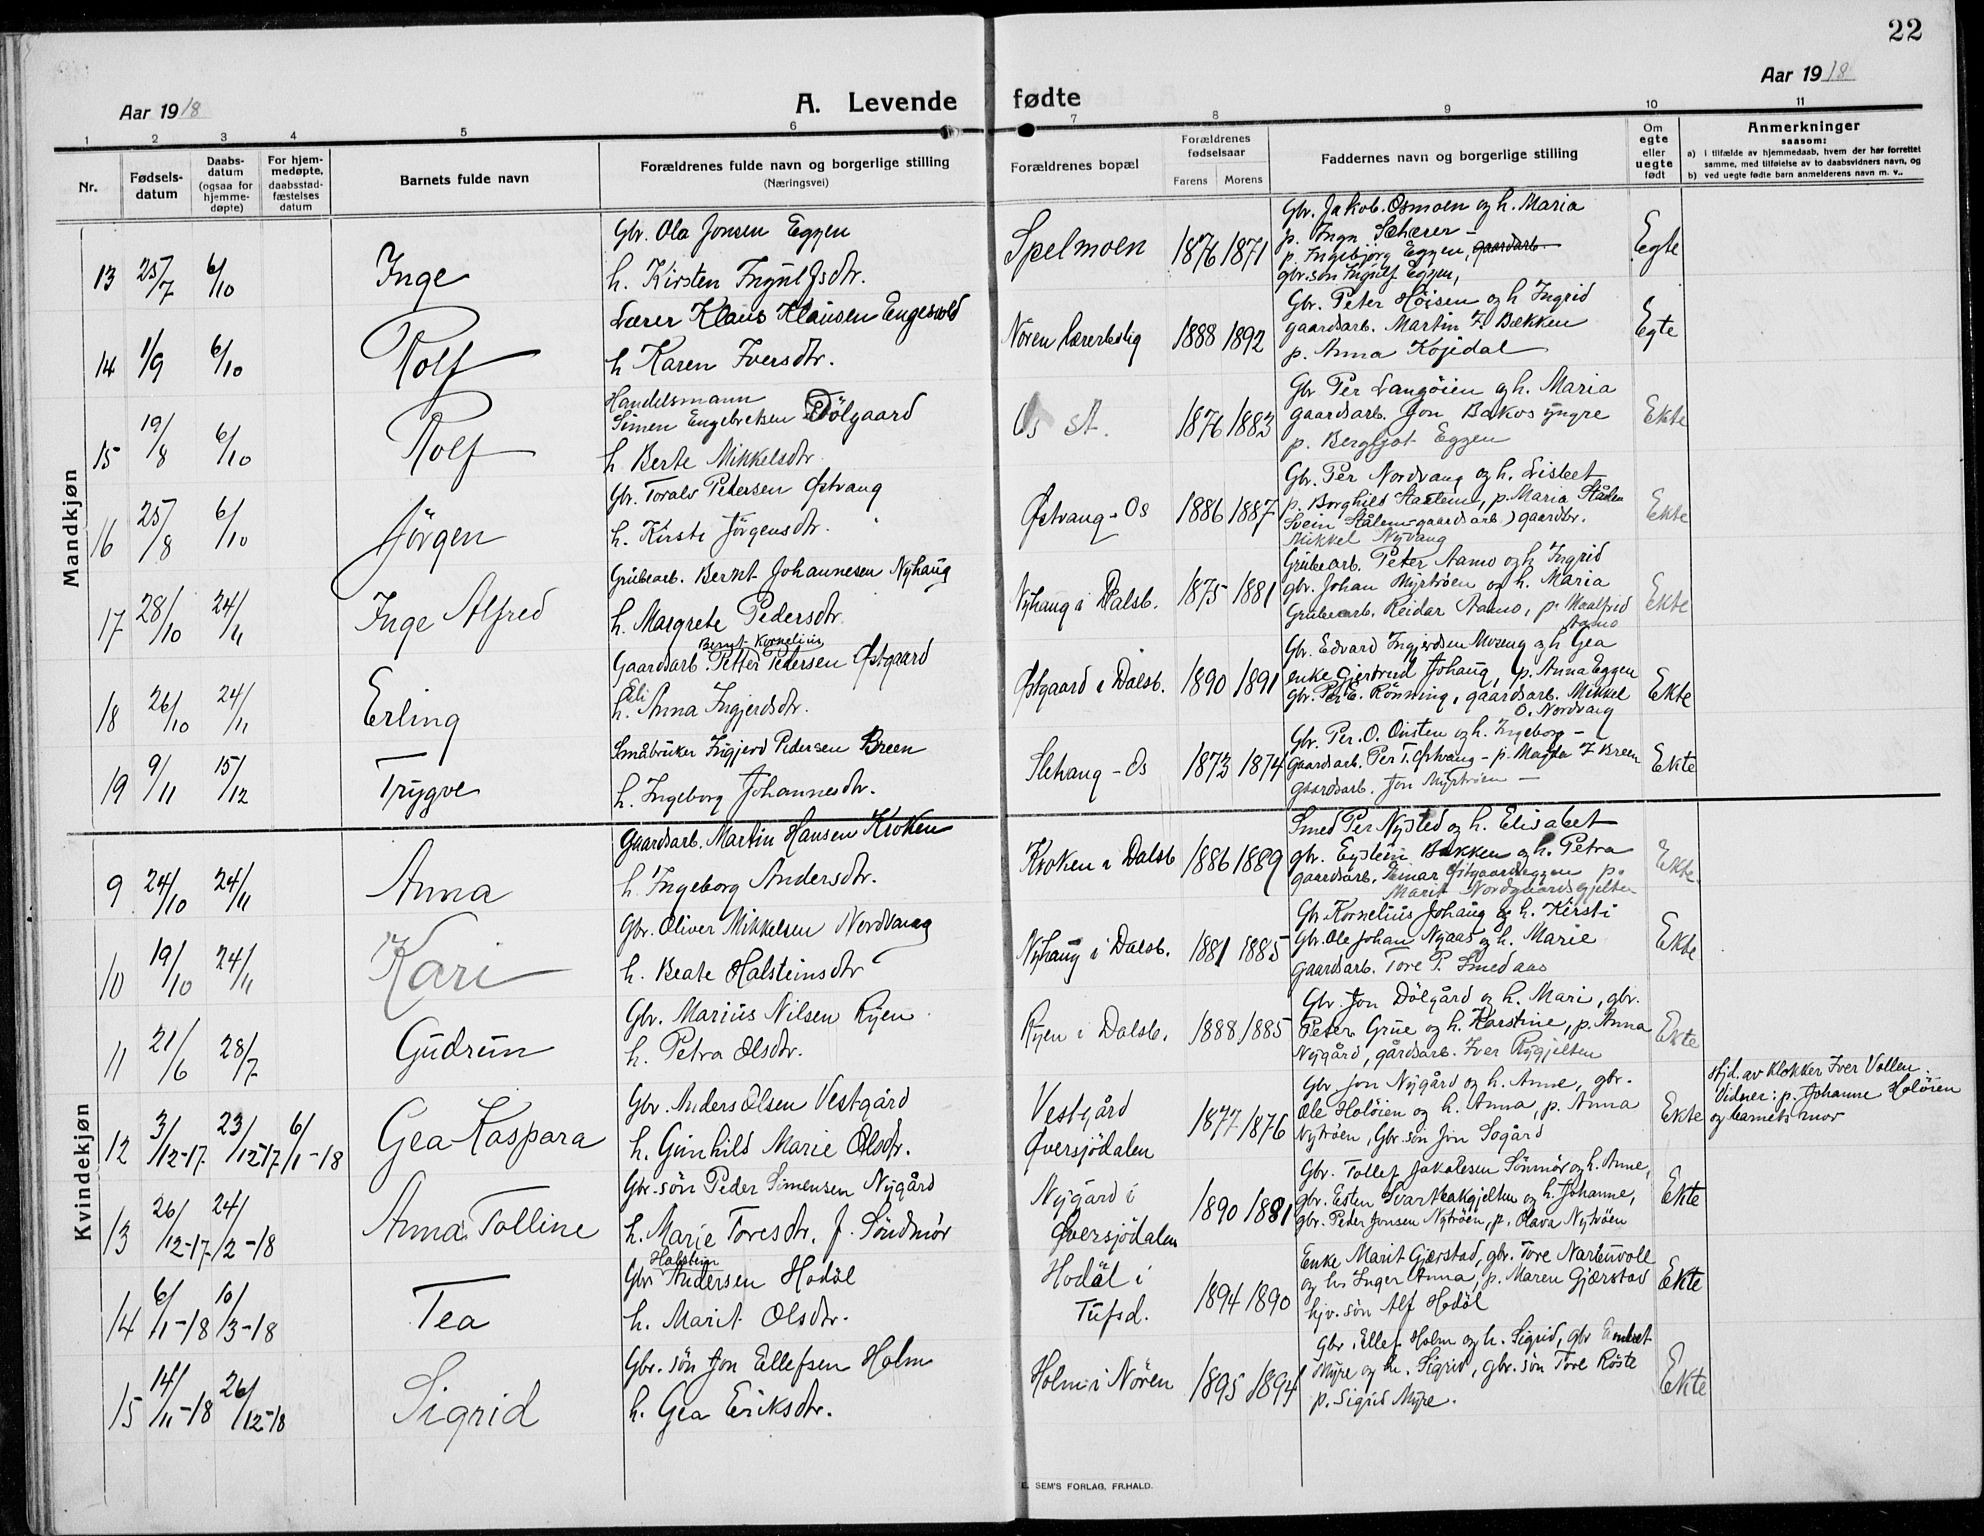 22
Aar 1918
A. Levende fødte
Aar 1918
1 2 3 4 5 6 7 8 9 10 11
Nr.
Fødsels-
datum
Daabs-
datum
(ogsaa for
hjemme-
døpte)
For hjem-
medøpte,
daabsstad-
fæstelses
datum
Barnets fulde navn
Forældrenes fulde navn og borgerlige stilling
(Næringsvei)
Forældrenes bopæl
Forældrenes
fødselsaar
Farens Morens
Faddernes navn og borgerlige stilling
Om
egte
eller
uegte
født
Anmerkninger
saasom:
a) i tilfælde av hjemmedaab, hvem der har forrettet
samme, med tilføielse av to daabsvidners navn, og
b) ved uegte fødte barn anmelderens navn m. v..
Mandkjøn
13 25/7 6/10 Inge
Gbr. Ola Jonsen Eggen
h. Kirsten Ingulfsdtr.
Spelmoen 1876 1871
Gbr. Jakob Osmoen og h. Maria
p. Inga Schærer -
p. Ingebjørg Eggen, gaardarb.
gbr.søn Ingulf Eggen,
Egte
14 1/9 6/10 Rolf
Lærer Klaus Klausen Engesvold
h Karen Iversdtr.
Nøren lærerbolig 1888 1892
Gbr. Peter Höisen og h Ingrid
gaardsarb. Martin J. Bækken
p. Anna Kojedal
Egte
15 19/8 6/10 Rolf
Handelsmann
Simen Engebretsen Dölgaard
h Berte Mikkelsdtr.
Os st. 1876 1883
Gbr Per Langöien og h. Maria
gaardsarb. Jon Bakos yngre
p. Bergljot Eggen
Ekte
16 25/8 6/10 Jörgen
Gbr. Toralv Pedersen Østvang
h. Kirsti Jörgensdtr.
Østvang - Os 1886 1887
Gbr. Per Nordvang og h. Lisbet
p. Borghild Staalem, p. Maria Stålen
Svein Stålem-gaardsarb) gaardbr.
Mikkel Nyvang
Ekte
17 28/10 24/11 Inge Alfred
Grubearb. Bernt Johannesen Nyhaug
h. Margrete Pedersdtr.
Nyhaug i Dalsb. 1875 1881
Grubearb. Peter Aamo og h Ingrid
gbr. Johan Myrtröen og h. Maria
Grubearb. Reidar Aamo, p. Maalfrid
Aamo
Ekte
18 26/10 24/11 Erling
Bernt Kornelius
Gaardsarb. Petter Pedersen Østgaard
Eli
h. Anna Ingjerdsdtr.
Østgaard i Dalsb. 1890 1891
Gbr. Edvard Ingjerdsen Moseng og h Gea
enke Gjertrud Johaug, p. Anna Eggen
gbr. Per E. Rönning, gaardsarb. Mikkel
O. Nordvang
Ekte
19 9/11 15/12 Trygve
Småbruker Ingjerd Pedersen Breen
h. Ingeborg Johannesdtr.
Slehaug - Os 1873 1874
Gbr. Per. O. Onsten og h. Ingeborg -
Gaardsarb. Per T. Østvang - p. Magda J Breen
Gaardsarb. Jon Myrtröen -
Ekte
Kvindekjøn
9 24/10 24/11 Anna
Gaardsarb. Martin Hansen Kroken
h. Ingeborg Andersdtr.
Kroken i Dalsb 1886 1889
Smed Per Nysted og h. Elisabet
gbr. Eystein Bakken og h. Petra
gaardsarb. Einar Østgaardseggen p.
Marit Nordgaardsgjelten
Ekte.
10 19/10 24/11 Kari
Gbr. Oliver Mikkelsen Nordvang
h. Beate Halsteinsdtr
Nyhaug i Dalsb. 1881 1885
Gbr. Kornelius Johaug og h. Kirsti
Gbr. Ole Johan Nyaas og h. Marie
gaardsarb. Tore P. Smedaas
Ekte
11 21/6 28/7 Gudrun
Gbr. Marius Nilsen Ryen
h. Petra Olsdtr.
Ryen i Dalsb. 1888 1885
Gbr. Jon Dölgård og h. Mari, gbr.
Peter Grue og h. Karstine, p. Anna
Nygård, gårdsarb. Iver Rygjelten
Ekte
12 3/12-17 23/12-17 6/1-18 Gea Kaspara
Gbr. Anders Olsen Vestgård
h. Gunhild Marie Olsdtr.
Vestgård
Øversjödalen 1877 1876
Gbr Jon Nygård og h. Anne, gbr.
Ole Holöien og h. Anna, p. Anna
Nytröen, Gbr. søn Jon Sogård
Ekte
Hjd. av klokker Iver Vollen.
Vidner: p. Johanne Holöien
og barnets mor
13 26/12-17 24/2-18 Anna Tolline
Gbr.-søn Peder Simensen Nygård
h. Marie Toresdtr. f. Söndmör
Nygård i
Øversjödalen 1890 1881
Gbr. Tollef Jakobsen Sönmör og h. Anne,
gbr. Esten Svartbakgjelten og h. Johanne,
gbr. Peder Jonsen Nytröen, p. Olava Nytröen
Ekte
14 6/1-18 10/3-18 Tea
Halstein
Gbr Andersen Hodöl
h. Marit Olsdtr.
Hodöl i
Tufsd. 1894 1890
Enke Marit Gjærstad, gbr. Tore Narbuvoll
og h. Inger Anna, p. Maren Gjærstad
hjv. søn Alf Hodöl
Ekte
15 14/11-18 26/12-18 Sigrid
Gbr. søn Jon Ellefsen Holm
h. Gea Eriksdtr.
Holm i Nören 1895 1894
Gbr. Ellef Holm og h. Sigrid, gbr Embret
Myre og h. Sigrid, gbr. søn Tore Röste
p. Sigrid Myre.
Ekte
E. SEM'S FORLAG, FR.HALD.